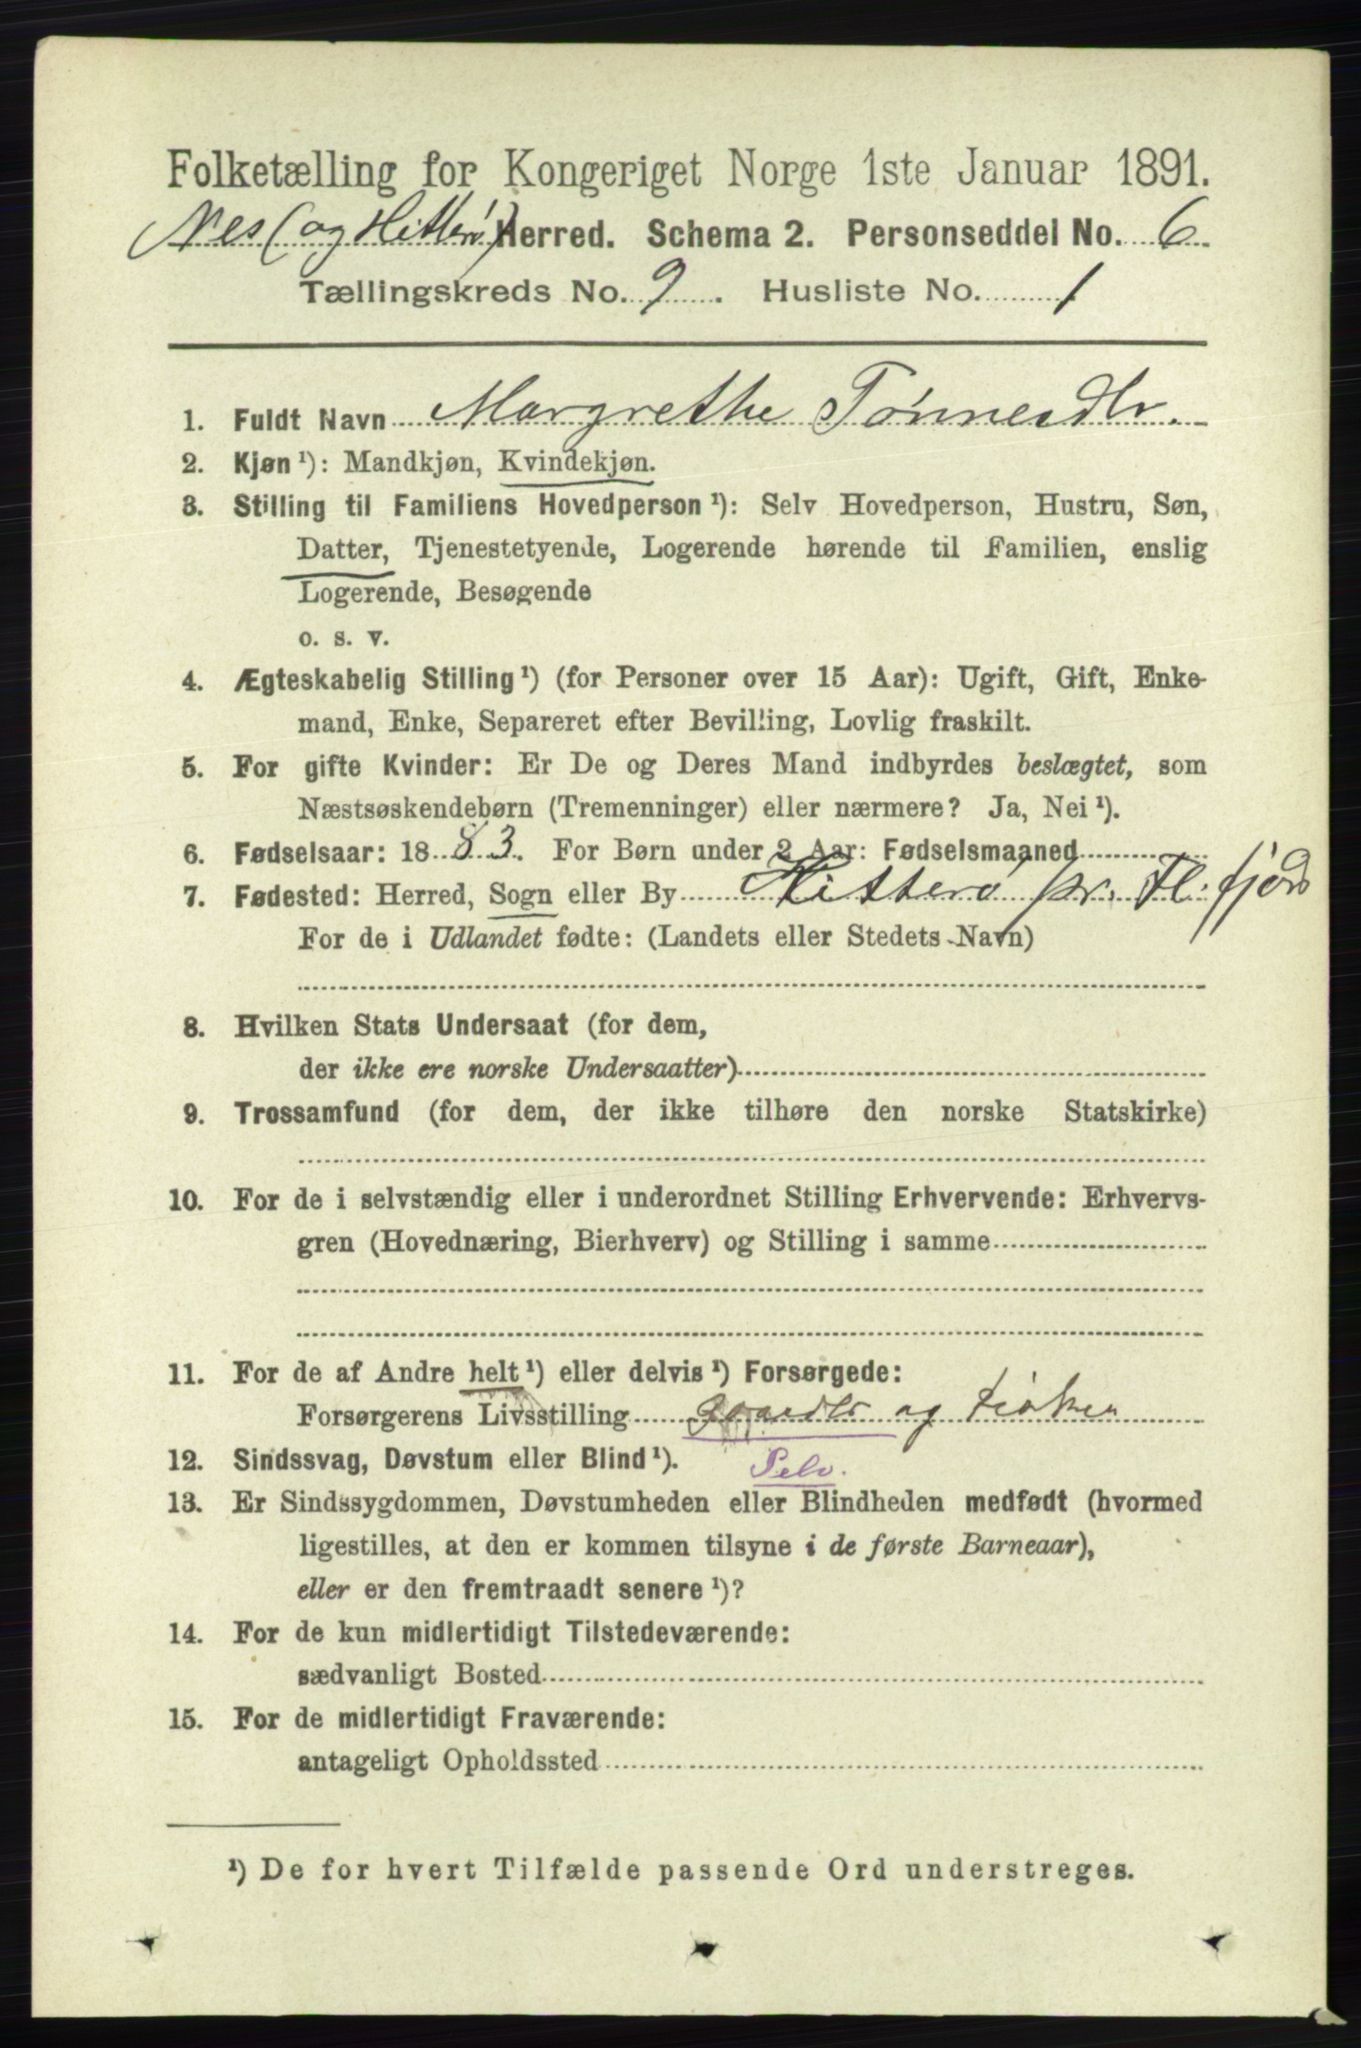 Folketælling for Kongeriget Norge 1ste Januar 1891.
Nes (og Hitterø) Herred. Schema 2. Personseddel No. 6
Tællingskreds No. 9. Husliste No. 1
1. Fuldt Navn Margrethe Tønnesdtr.
2. Kjøn ¹): Mandkjøn, Kvindekjøn.
3. Stilling til Familiens Hovedperson ¹): Selv Hovedperson, Hustru, Søn,
Datter, Tjenestetyende, Logerende hørende til Familien, enslig
Logerende, Besøgende
o. s. v.
4. Ægteskabelig Stilling ¹) (for Personer over 15 Aar): Ugift, Gift, Enke-
mand, Enke, Separeret efter Bevilling, Lovlig fraskilt.
5. For gifte Kvinder: Er De og Deres Mand indbyrdes beslægtet, som
Næstsøskendebørn (Tremenninger) eller nærmere? Ja, Nei ¹).
6. Fødselsaar: 1883. For Børn under 2 Aar: Fødselsmaaned
7. Fødested: Herred, Sogn eller By Hitterø pr. Fl.fjord
For de i Udlandet fødte: (Landets eller Stedets Navn)
8. Hvilken Stats Undersaat (for dem,
der ikke ere norske Undersaatter)
9. Trossamfund (for dem, der ikke tilhøre den norske Statskirke)
10. For de i selvstændig eller i underordnet Stilling Erhvervende: Erhvervs-
gren (Hovednæring, Bierhverv) og Stilling i samme
11. For de af Andre helt ¹) eller delvis ¹) Forsørgede:
Forsørgerens Livsstilling Gaardbr og fisker
12. Sindssvag, Døvstum eller Blind ¹). Selv.
13. Er Sindssygdommen, Døvstumheden eller Blindheden medfødt (hvormed
ligestilles, at den er kommen tilsyne i de første Barneaar),
eller er den fremtraadt senere ¹)?
14. For de kun midlertidigt Tilstedeværende:
sædvanligt Bosted
15. For de midlertidigt Fraværende:
antageligt Opholdssted
¹) De for hvert Tilfælde passende Ord understreges.